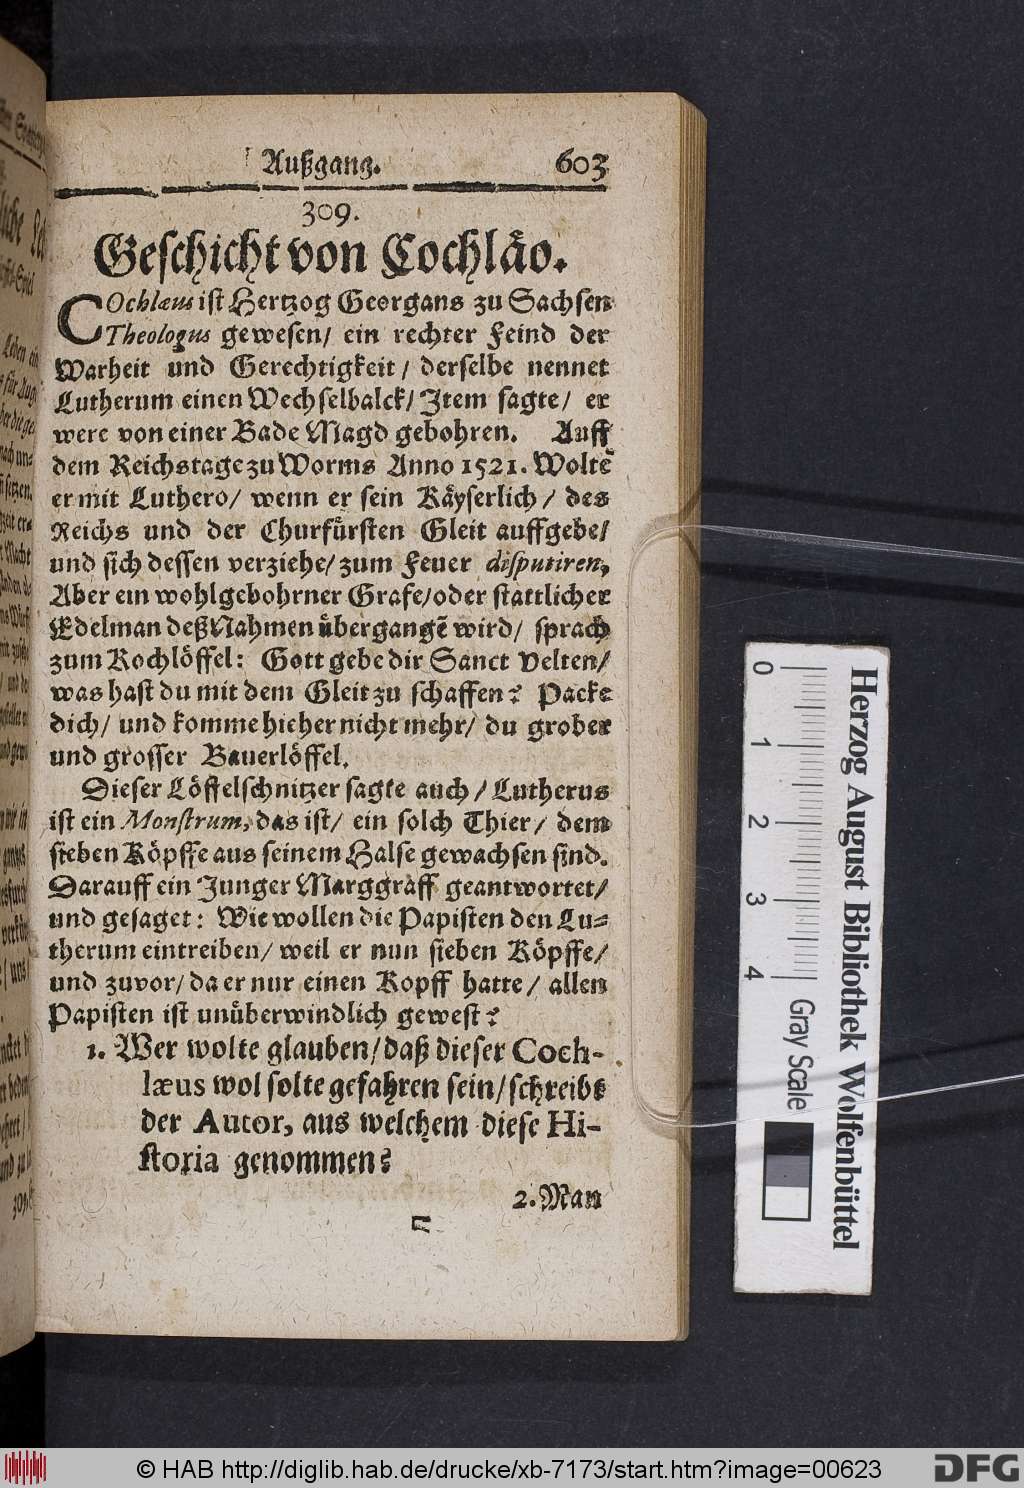 Außgang. 603
309.
Geschicht von Cochläo.
COchlæus ist Hertzog Georgans zu Sachsen
Theologus gewesen/ ein rechter Feind der
Warheit und Gerechtigkeit/ derselbe nennet
Lutherum einen Wechselbalck/ Item sagte/ er
were von einer Bade Magd gebohren. Auff
dem Reichstage zu Worms Anno 1521. Wolte
er mit Luthero/ wenn er sein Käyserlich/ des
Reichs und der Churfürsten Gleit auffgebe/
und sich dessen verziehe/ zum Feuer disputiren,
Aber ein wohlgebohrner Grafe/ oder stattlicher
Edelman deß Nahmen übergangē wird/ sprach
zum Kochlöffel: Gott gebe dir Sanct Velten/
was hast du mit dem Gleit zu schaffen? Packe
dich/ und komme hieher nicht mehr/ du grober
und grosser Bauerlöffel.
Dieser Löffelschnitzer sagte auch/ Lutherus
ist ein Monstrum, das ist/ ein solch Thier/ dem
sieben Köpffe aus seinem Halse gewachsen sind.
Darauff ein Junger Marggraff geantwortet/
und gesaget: Wie wollen die Papisten den Lu-
therum eintreiben/ weil er nun sieben Köpffe/
und zuvor/ da er nur einen Kopff hatte/ allen
Papisten ist unüberwindlich gewest?
1. Wer wolte glauben/ daß dieser Coch-
læus wol solte gefahren sein/ schreibt
der Autor, aus welchem diese Hi-
storia genommen?
2. Man
0 1 2 3 4
Gray Scale
Herzog August Bibliothek Wolfenbüttel
© HAB http://diglib.hab.de/drucke/xb-7173/start.htm?image=00623
DFG